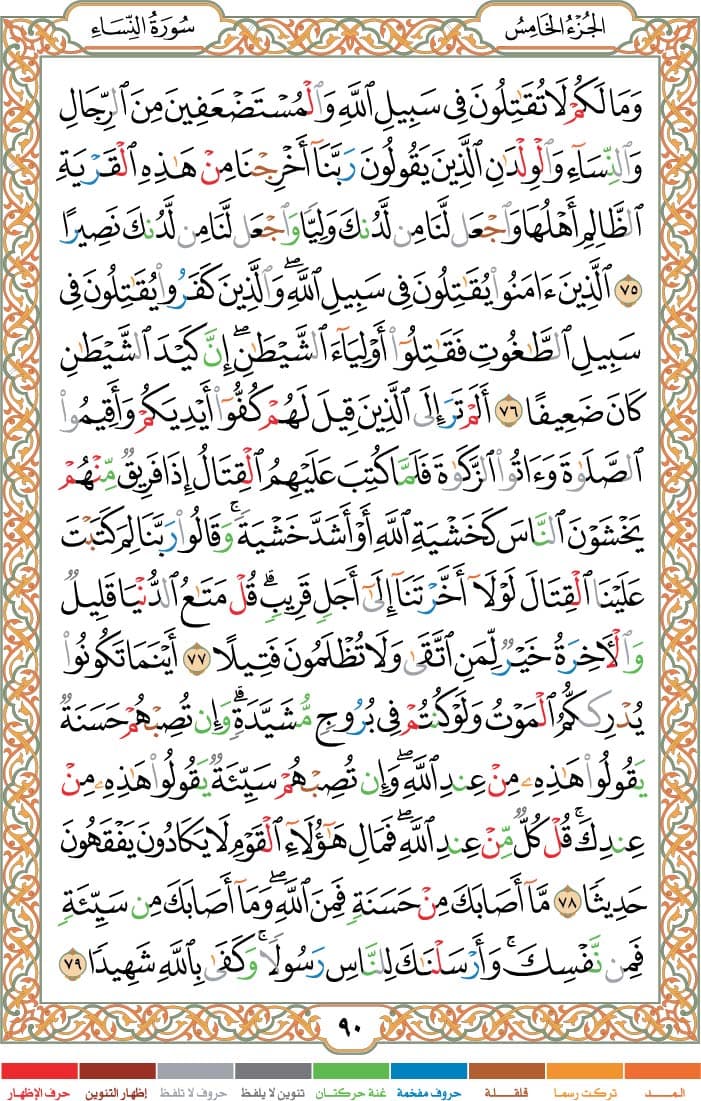 الجُزْءُ الخَامِسُ
سُورَةُ النِّسَاءِ
وَمَا لَكُمْ لَا تُقَٰتِلُونَ فِى سَبِيلِ ٱللَّهِ وَٱلْمُسْتَضْعَفِينَ مِنَ ٱلرِّجَالِ
وَٱلنِّسَآءِ وَٱلْوِلْدَٰنِ ٱلَّذِينَ يَقُولُونَ رَبَّنَآ أَخْرِجْنَا مِنْ هَٰذِهِ ٱلْقَرْيَةِ
ٱلظَّالِمِ أَهْلُهَا وَٱجْعَل لَّنَا مِن لَّدُنكَ وَلِيًّا وَٱجْعَل لَّنَا مِن لَّدُنكَ نَصِيرًا
٧٥ ٱلَّذِينَ ءَامَنُوا۟ يُقَٰتِلُونَ فِى سَبِيلِ ٱللَّهِ ۖ وَٱلَّذِينَ كَفَرُوا۟ يُقَٰتِلُونَ فِى
سَبِيلِ ٱلطَّٰغُوتِ فَقَٰتِلُوٓا۟ أَوْلِيَآءَ ٱلشَّيْطَٰنِ ۖ إِنَّ كَيْدَ ٱلشَّيْطَٰنِ
كَانَ ضَعِيفًا ٧٦ أَلَمْ تَرَ إِلَى ٱلَّذِينَ قِيلَ لَهُمْ كُفُّوٓا۟ أَيْدِيَكُمْ وَأَقِيمُوا۟
ٱلصَّلَوٰةَ وَءَاتُوا۟ ٱلزَّكَوٰةَ فَلَمَّا كُتِبَ عَلَيْهِمُ ٱلْقِتَالُ إِذَا فَرِيقٌ مِّنْهُمْ
يَخْشَوْنَ ٱلنَّاسَ كَخَشْيَةِ ٱللَّهِ أَوْ أَشَدَّ خَشْيَةً ۚ وَقَالُوا۟ رَبَّنَا لِمَ كَتَبْتَ
عَلَيْنَا ٱلْقِتَالَ لَوْلَآ أَخَّرْتَنَآ إِلَىٰٓ أَجَلٍ قَرِيبٍ ۗ قُلْ مَتَٰعُ ٱلدُّنْيَا قَلِيلٌ
وَٱلْءَاخِرَةُ خَيْرٌ لِّمَنِ ٱتَّقَىٰ وَلَا تُظْلَمُونَ فَتِيلًا ٧٧ أَيْنَمَا تَكُونُوا۟
يُدْرِككُّمُ ٱلْمَوْتُ وَلَوْ كُنتُمْ فِى بُرُوجٍ مُّشَيَّدَةٍ ۗ وَإِن تُصِبْهُمْ حَسَنَةٌ
يَقُولُوا۟ هَٰذِهِۦ مِنْ عِندِ ٱللَّهِ ۖ وَإِن تُصِبْهُمْ سَيِّئَةٌ يَقُولُوا۟ هَٰذِهِۦ مِنْ
عِندِكَ ۚ قُلْ كُلٌّ مِّنْ عِندِ ٱللَّهِ ۖ فَمَالِ هَٰٓؤُلَآءِ ٱلْقَوْمِ لَا يَكَادُونَ يَفْقَهُونَ
حَدِيثًا ٧٨ مَّآ أَصَابَكَ مِنْ حَسَنَةٍ فَمِنَ ٱللَّهِ ۖ وَمَآ أَصَابَكَ مِن سَيِّئَةٍ
فَمِن نَّفْسِكَ ۚ وَأَرْسَلْنَٰكَ لِلنَّاسِ رَسُولًا ۚ وَكَفَىٰ بِٱللَّهِ شَهِيدًا ٧٩
٩٠
المـــد تركت رسما قلقـلة حروف مفخمة غنة حركتان تنوين لا يلفظ حروف لا تلفظ إظهار التنوين حرف الإظهار